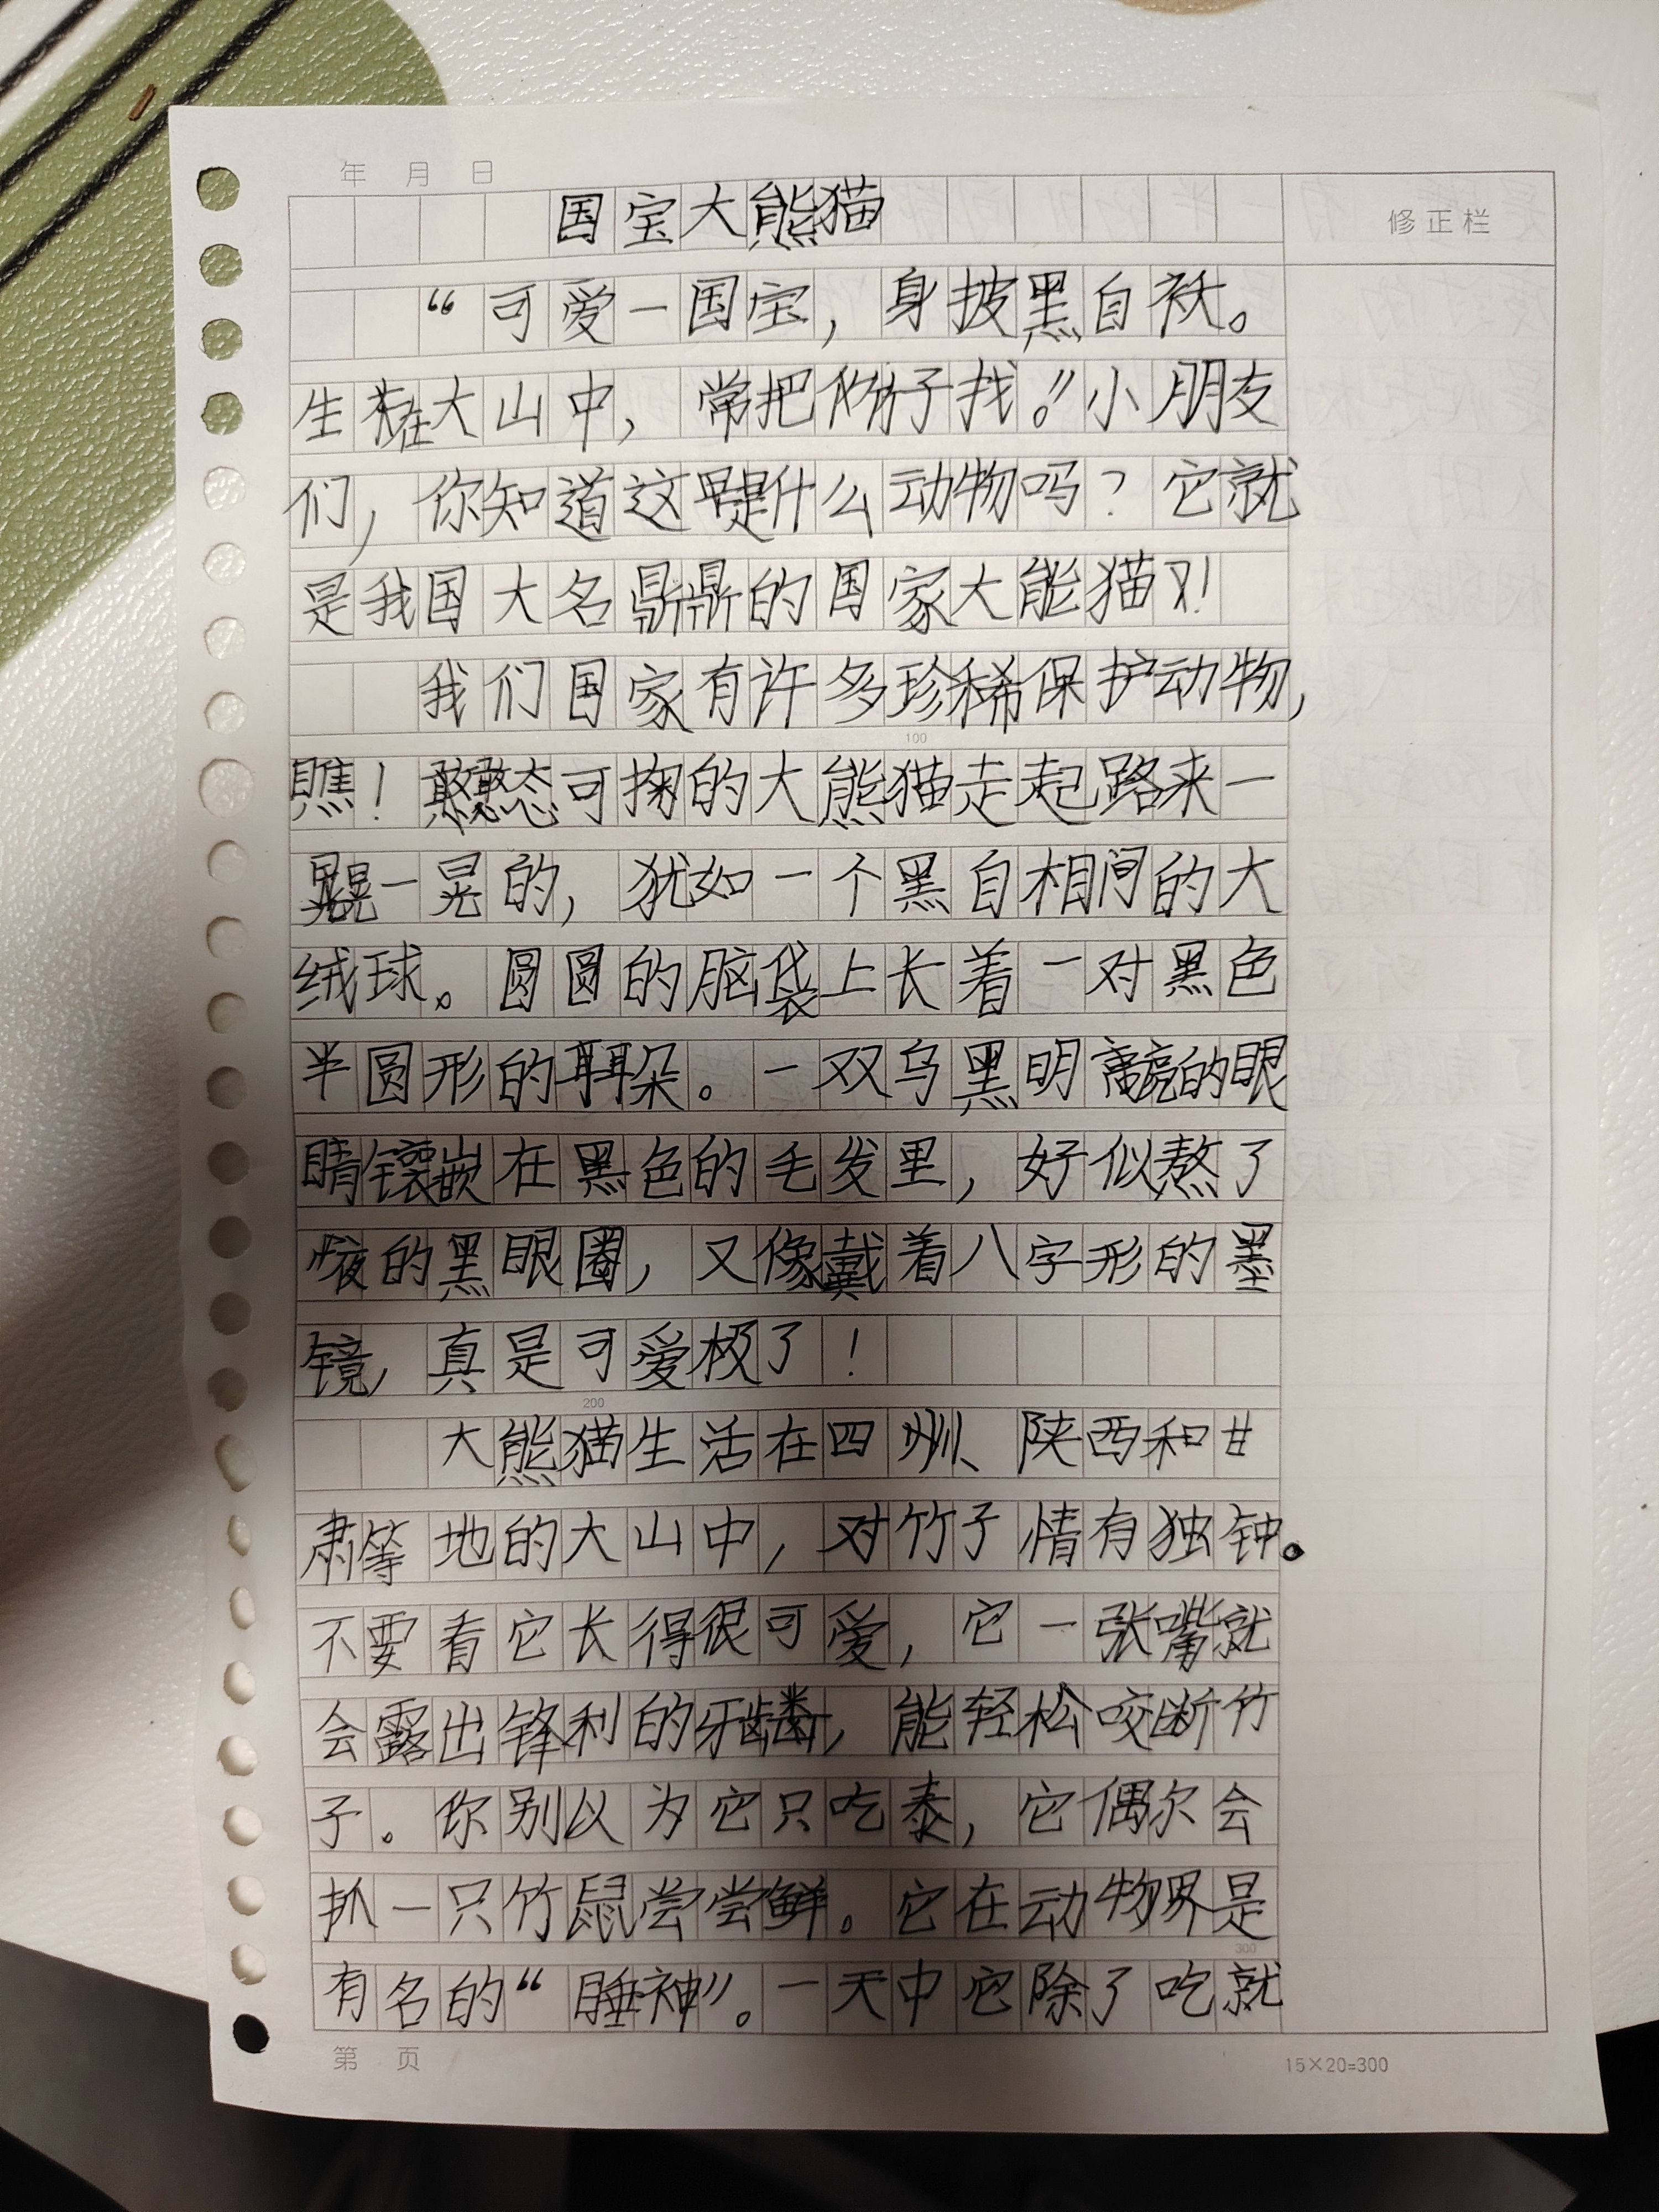 年 月 日
国宝大熊猫
修正栏
“可爱一国宝，身披黑白袄。
生在大山中，常把竹子找。”小朋友
们，你知道这是什么动物吗？它就
是我国大名鼎鼎的国家大能猫！
我们国家有许多珍稀保护动物，
100
瞧！憨态可掬的大熊猫走起路来一
晃一晃的，犹如一个黑白相间的大
绒球。圆圆的脑袋上长着一对黑色
半圆形的耳朵。一双乌黑明亮的眼
睛镶嵌在黑色的毛发里，好似熬了
夜的黑眼圈，又像戴着八字形的墨
镜，真是可爱极了！
200
大熊猫生活在四川、陕西和甘
肃等地的大山中，对竹子情有独钟。
不要看它长得很可爱，它一张嘴就
会露出锋利的牙齿，能轻松咬断竹
子。你别以为它只吃素，它偶尔会
抓一只竹鼠尝尝鲜。它在动物界是
300
有名的“睡神”。一天中它除了吃就
第 页
15×20=300